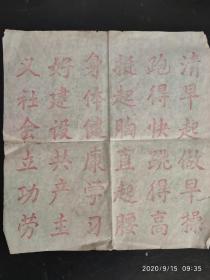 清早起做早操
跑得快跳得高
挺起胸直起腰
身体健康学习
好建设共产主
义社会立功劳
2020/9/15 09:35